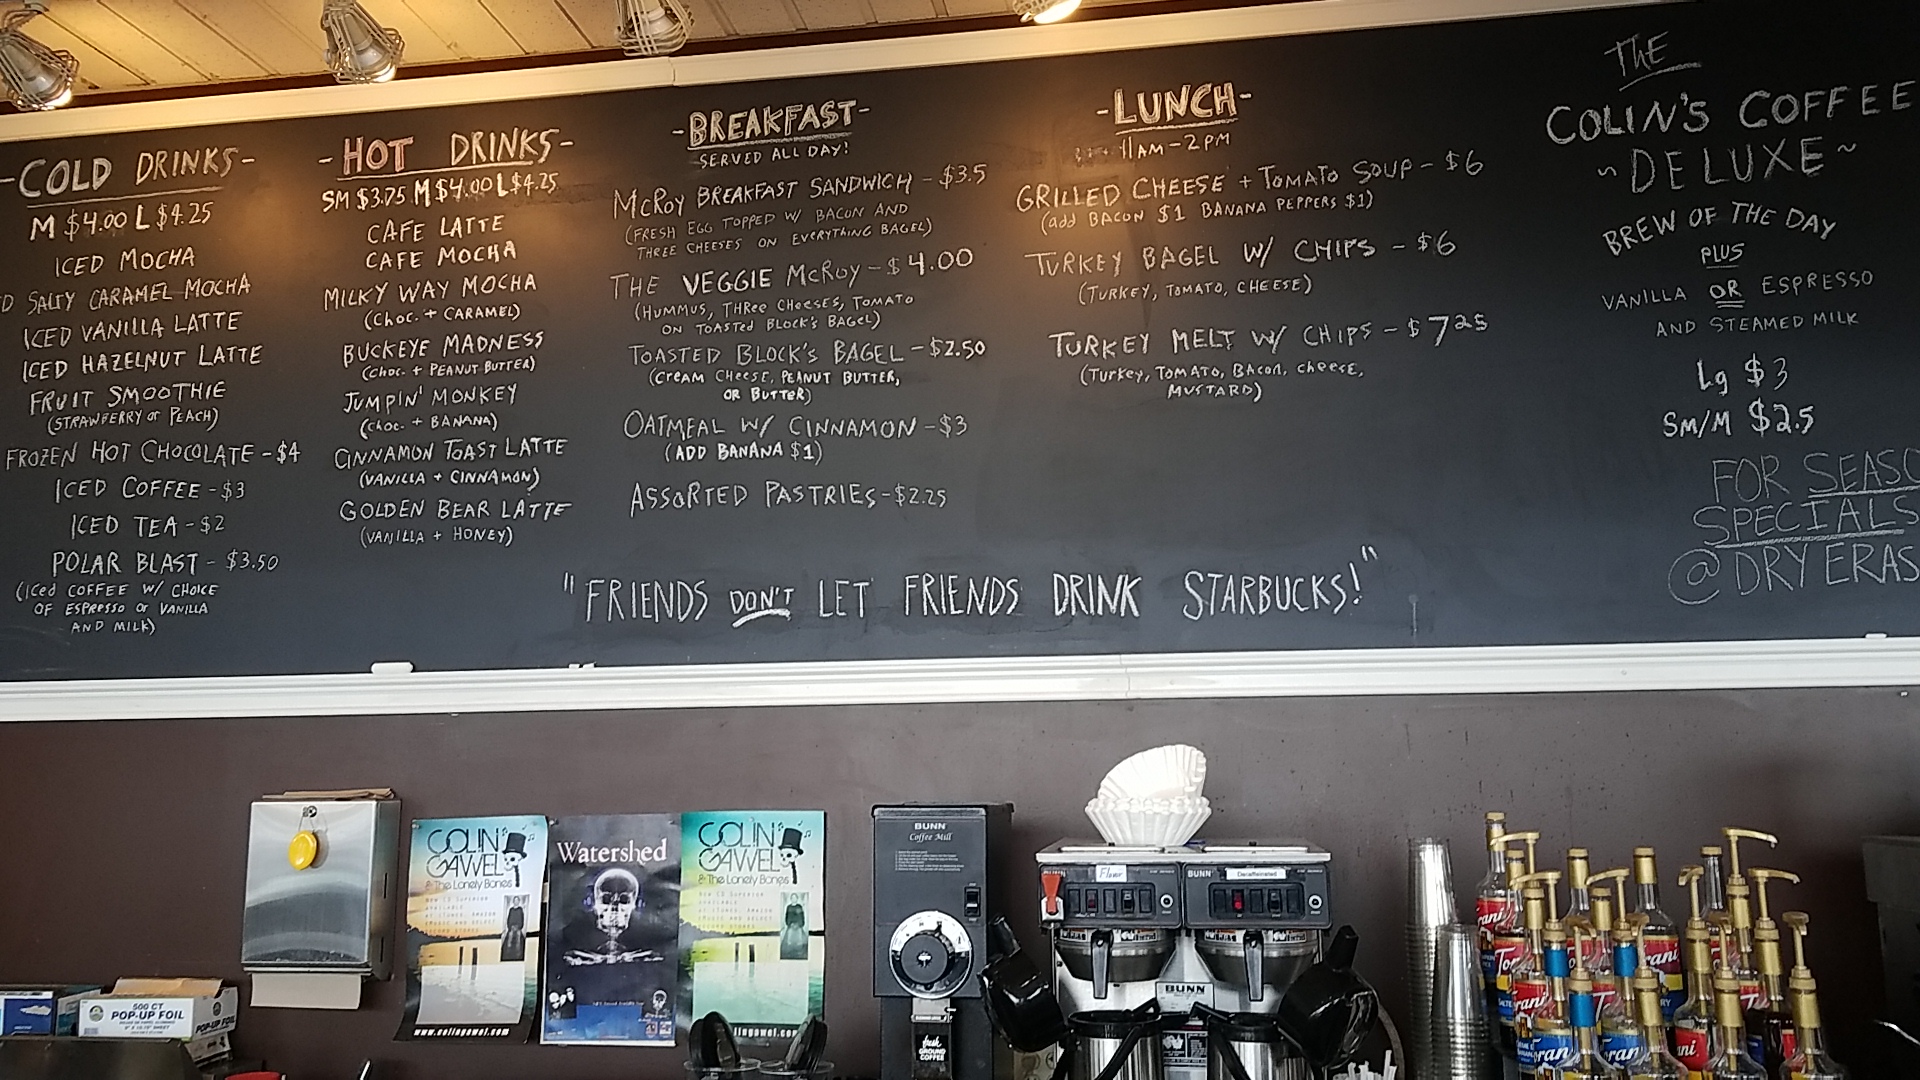 -COLD DRINKS-
M $4.00 L $4.25
ICED MOCHA
D SALTY CARAMEL MOCHA
ICED VANILLA LATTE
ICED HAZELNUT LATTE
FRUIT SMOOTHIE
(STRAWBERRY or PEACH)
FROZEN HOT CHOCOLATE - $4
ICED COFFEE - $3
ICED TEA - $2
POLAR BLAST - $3.50
(Iced COFFEE W/ CHOICE
OF ESPRESSO or VANILLA
AND MILK)
-HOT DRINKS-
SM $3.75 M $4.00 L $4.25
CAFE LATTE
CAFE MOCHA
MILKY WAY MOCHA
(Choc. + CARAMEL)
BUCKEYE MADNESS
(Choc. + PEANUT BUTTER)
JUMPIN' MONKEY
(Choc. + BANANA)
CINNAMON TOAST LATTE
(VANILLA + CINNAMON)
GOLDEN BEAR LATTE
(VANILLA + HONEY)
-BREAKFAST-
SERVED ALL DAY!
McROY BREAKFAST SANDWICH - $3.5
(FRESH EGG TOPPED W/ BACON AND
THREE CHEESES ON EVERYTHING BAGEL)
THE VEGGIE McRoy - $4.00
(HUMMUS, THREE CHEESES, TOMATO
ON TOASTED BLOCK'S BAGEL)
TOASTED BLOCK'S BAGEL - $2.50
(CREAM CHEESE, PEANUT BUTTER,
OR BUTTER)
OATMEAL W/ CINNAMON - $3
(ADD BANANA $1)
ASSORTED PASTRIES - $2.25
-LUNCH-
11AM - 2PM
GRILLED CHEESE + TOMATO SOUP - $6
(add BACON $1 BANANA PEPPERS $1)
TURKEY BAGEL W/ CHIPS - $6
(TURKEY, TOMATO, CHEESE)
TURKEY MELT W/ CHIPS - $7 25
(Turkey, TOMATO, BACON, cheese,
MUSTARD)
"FRIENDS DON'T LET FRIENDS DRINK STARBUCKS!"
THE
COLIN'S COFFEE
~DELUXE~
BREW OF THE DAY
PLUS
VANILLA OR ESPRESSO
AND STEAMED MILK
Lg $3
Sm/M $2.5
FOR SEASO
SPECIALS
@DRY ERAS
COLIN
GAWEL
& The Lonely Bones
www.colingawel.com
Watershed
COLIN
GAWEL
& The Lonely Bones
lingawel.com
BUNN
Coffee Mill
fresh
GROUND
COFFEE
Flavor
BUNN
Decaffeinated
BUNN
500 CT
POP-UP FOIL
POP-UP FOIL
Torani